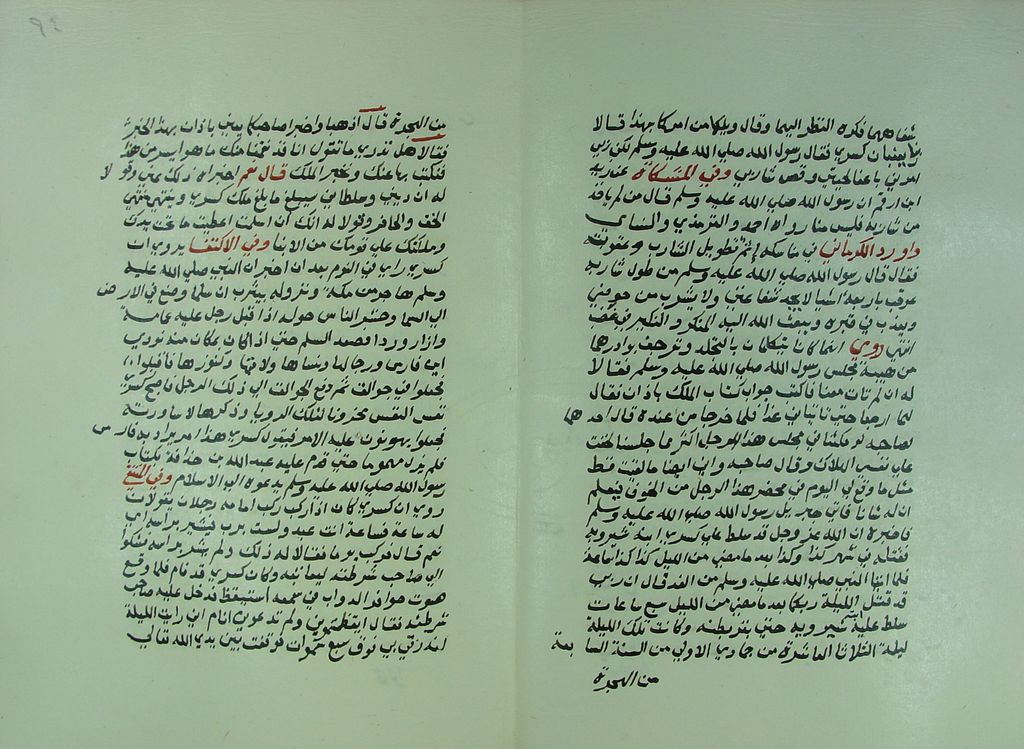 شفاههما فكره النظر اليهما وقال ويلكما من امركما بهذا قالا
ربنا يعنيان كسري فقال رسول الله صلي الله عليه وسلم لكن ربي
امرني باعفا لحيتي وقص شاربي وفي المشكاة عن زيد
ابن ارقم ان رسول الله صلي الله عليه وسلم قال من لم ياخذ
من شاربه فليس منا رواه احمد والترمذي والنساي
واورد الكرماني في مناسكه اثم تطويل الشارب وعقوبته
فقال قال رسول الله صلي الله عليه وسلم من طول شاربه
عوقب باربعة اشيا لا يجد شفاعتي ولا يشرب من حوضي
ويعذب في قبره ويبعث الله اليه المنكر والنكير في غضب
انتهي روي انهما كانا يتكلمان بالتجلد وترجف بوادرهما
من هيبة مجلس رسول الله صلي الله عليه وسلم فقالا
له ان لم تات معنا فاكتب جواب كتاب الملك باذان فقال
لهما ارجعا حتي تاتياني غدا فلما خرجا من عنده قال احدهما
لصاحبه لو مكثنا في مجلس هذا الرجل اكثر مما جلسنا لخفت
علي نفسي الهلاك وقال صاحبه واني ايضا مالقيت قط
مثل ما وقع لي اليوم في محضر هذا الرجل من الخوف فيعلم
ان له شانا فاتي جبريل رسول الله صلي الله عليه وسلم
فاخبره ان الله عز وجل قد سلط علي كسري ابنه شيرويه
فقتله في شهر كذا وكذا بعد ما مضي من الليل كذا كذا ساعة
فلما اتيا النبي صلي الله عليه وسلم من الغد قال ان ربي
قد قتل الليلة ربكما بعد ما مضي من الليل سبع ساعات
سلط عليه شيرويه حتي بقر بطنه وكانت تلك الليلة
ليلة الثلاثا العاشرة من جمادي الاولي من السنة السابعة
من الهجرة
من الهجرة قال اذهبا واخبرا صاحبكما يعني باذان بهذا الخبر
فقالا هل تدري ما تقول انا قد نقمنا منك ما هو ايسر من هذا
فنكتب بها عنك ونخبر الملك قال نعم اخبراه ذلك عني وقولا
له ان ديني وسلطاني سيبلغ ما بلغ ملك كسري وينتهي منتهي
الخف والحافر وقولا له انك ان اسلمت اعطيت ما تحت يدك
وملكتك علي قومك من الابنا وفي الاكتفا يروي ان
كسري راي في النوم بعد ان اخبر ان النبي صلي الله عليه
وسلم هاجر من مكة ونزوله بيثرب ان سلما وضع في الارض
الي السما وحشر الناس حوله اذ اقبل رجل عليه عمامة
وازار وردا فصعد السلم حتي اذا كان بمكان منه نودي
اين فارس ورجالها ونساها ولامتها وكنوزها فاقبلوا
فجعلوا في جوالق ثم دفع الجوالق الي ذلك الرجل فاصبح كسري
نفس النفس محزونا لتلك الرويا وذكرها لاساورته
فجعلوا يهونون عليه الامر فيقول كسري هذا امر يراد به فارس
فلم يزل مهموما حتي قدم عليه عبد الله بن حذافة بكتاب
رسول الله صلي الله عليه وسلم يدعوه الي الاسلام وفي المنتقي
روي ان كسري كان اذا ركب ركب امامه رجلان يقولان
له ساعة فساعة انت عبد ولست برب فيشير براسه اي
نعم قال فركب يوما فقالا له ذلك ولم يشر براسه فشكوا
الي صاحب شرطته ليعاتبه وكان كسري قد نام فلما وقع
صوت حوافر الدواب في سمعه استيقظ فدخل عليه صاحب
شرطته فقال ايقظتموني ولم تدعوني انام اني رايت الليلة
انه رقي بي فوق سبع سموات فوقفت بين يدي الله تعالي